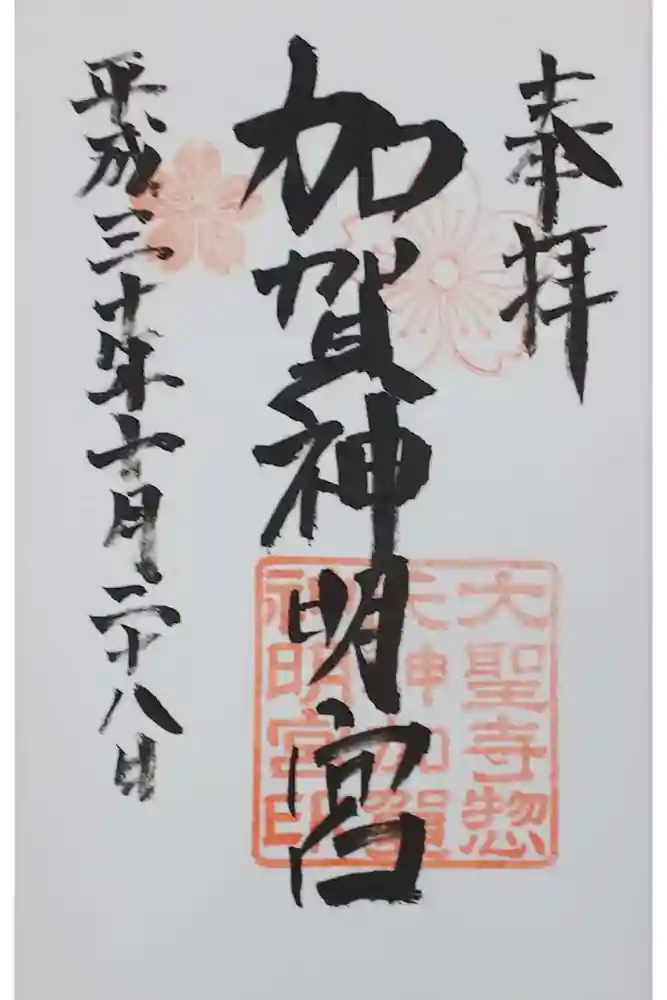 奉拝
加賀神明宮
大聖寺惣
天神加賀
神明宮印
平成三十年十月二十八日